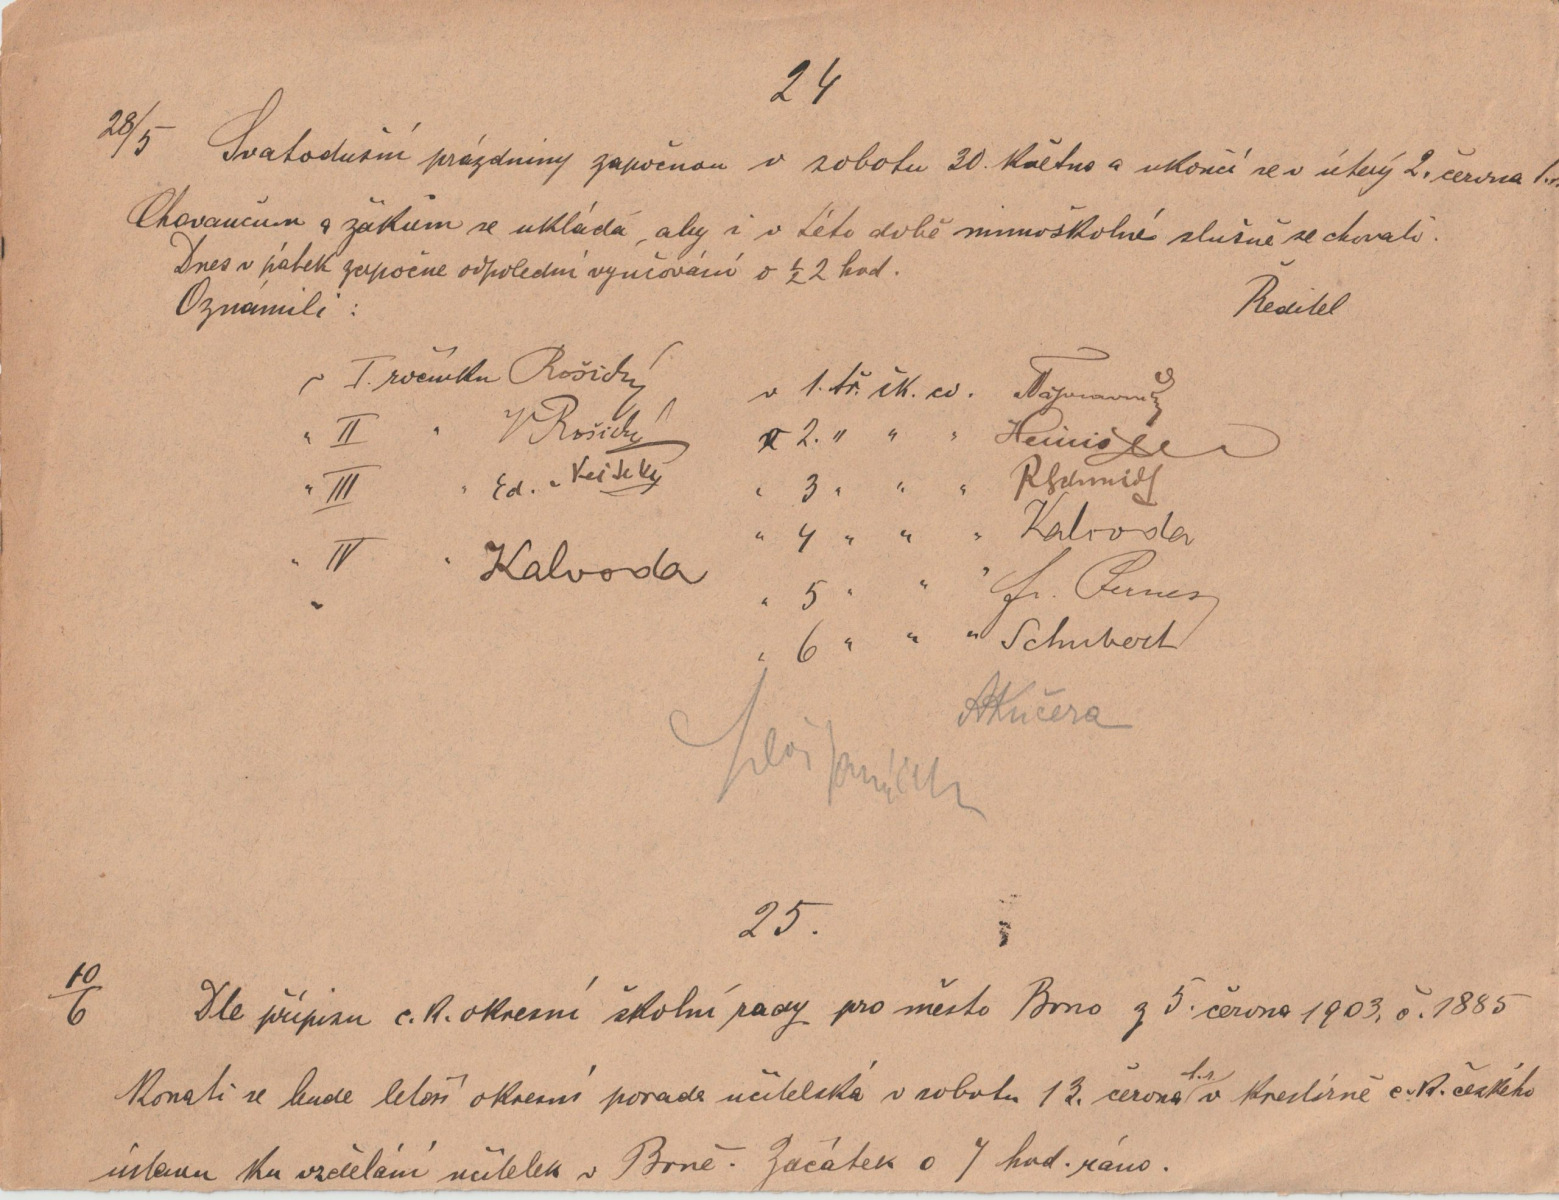 24
28/5 Svatodušní prázdniny započnou v sobotu 30. května a ukončí se v úterý 2. června t.r.
Chovancům a žákům se ukládá, aby i v této době mimoškolné slušně se chovali.
Dnes v pátek započne odpolední vyučování o ½2 hod.
Oznámili : Ředitel
v I. ročníku Rošický v 1. tř. šk. cv. Nápravník
" II " V Rošický v 2. " " "
" III " Ed. " 3 " " " RSchmidt
" IV " Kalvoda " 4 " " " Kalvoda
" " 5 " " " Fr. Pernes
" 6 " " " Schubert
AKučera
25.
10/6 Dle přípisu c. k. okresní školní rady pro město Brno z 5. června 1903, č. 1885
konati se bude letoší okresní porada učitelská v sobotu 13. června t.r. v kreslírně c. k. českého
ústavu ku vzdělání učitelek v Brně. Začátek o 7 hod. ráno.